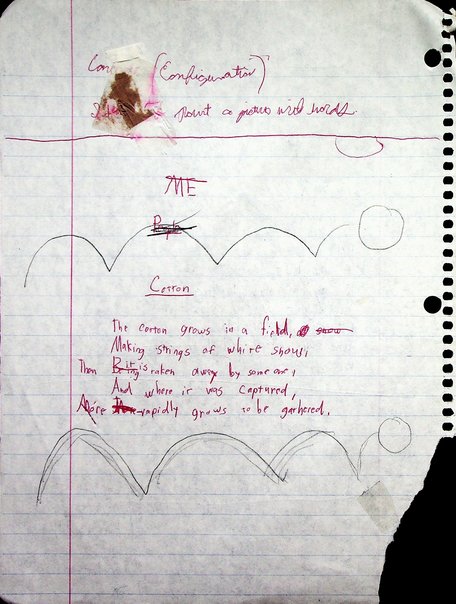 Con (Configuration)
Paint a picture with words.
ME
People
Cotton
The cotton grows in a field, snow
Making strings of white shows;
Then But it is taken away by some one;
And where it was captured,
More rapidly grows to be gathered.